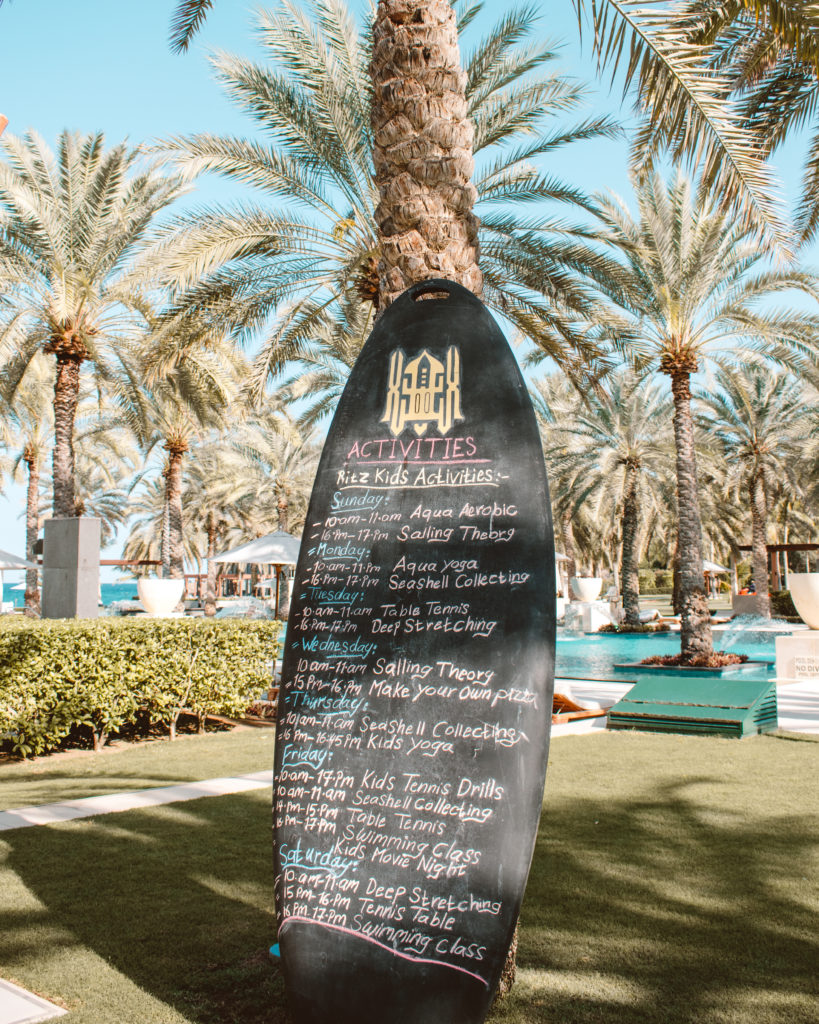 ACTIVITIES
Ritz Kids Activities :-
Sunday:
- 10am - 11am Aqua Aerobic
- 16 Pm - 17 Pm Sailing Theory
= Monday:
- 10am - 11am Aqua yoga
- 16 Pm - 17 Pm Seashell Collecting
= Tuesday:
- 10 am - 11 am Table Tennis
- 16 Pm - 17 Pm Deep Stretching
Wednesday:
10am - 11am Salling Theory
= 15 Pm - 16 Pm Make your own pizza
Thursday:
= 10am - 11am Seashell Collecting
- 16 Pm - 16:45 Pm Kids yoga
Friday:
- 10 am - 17 Pm Kids Tennis Drills
- 10 am - 11 am Seashell Collecting
14 Pm - 15 Pm Table Tennis
16 Pm - 17 Pm Swimming Class
Kids Movie Night
Saturday:
- 10 am - 11 am Deep Stretching
= 15 Pm - 16 Pm Tennis Table
= 16 Pm - 17 Pm Swimming Class
NO DIV